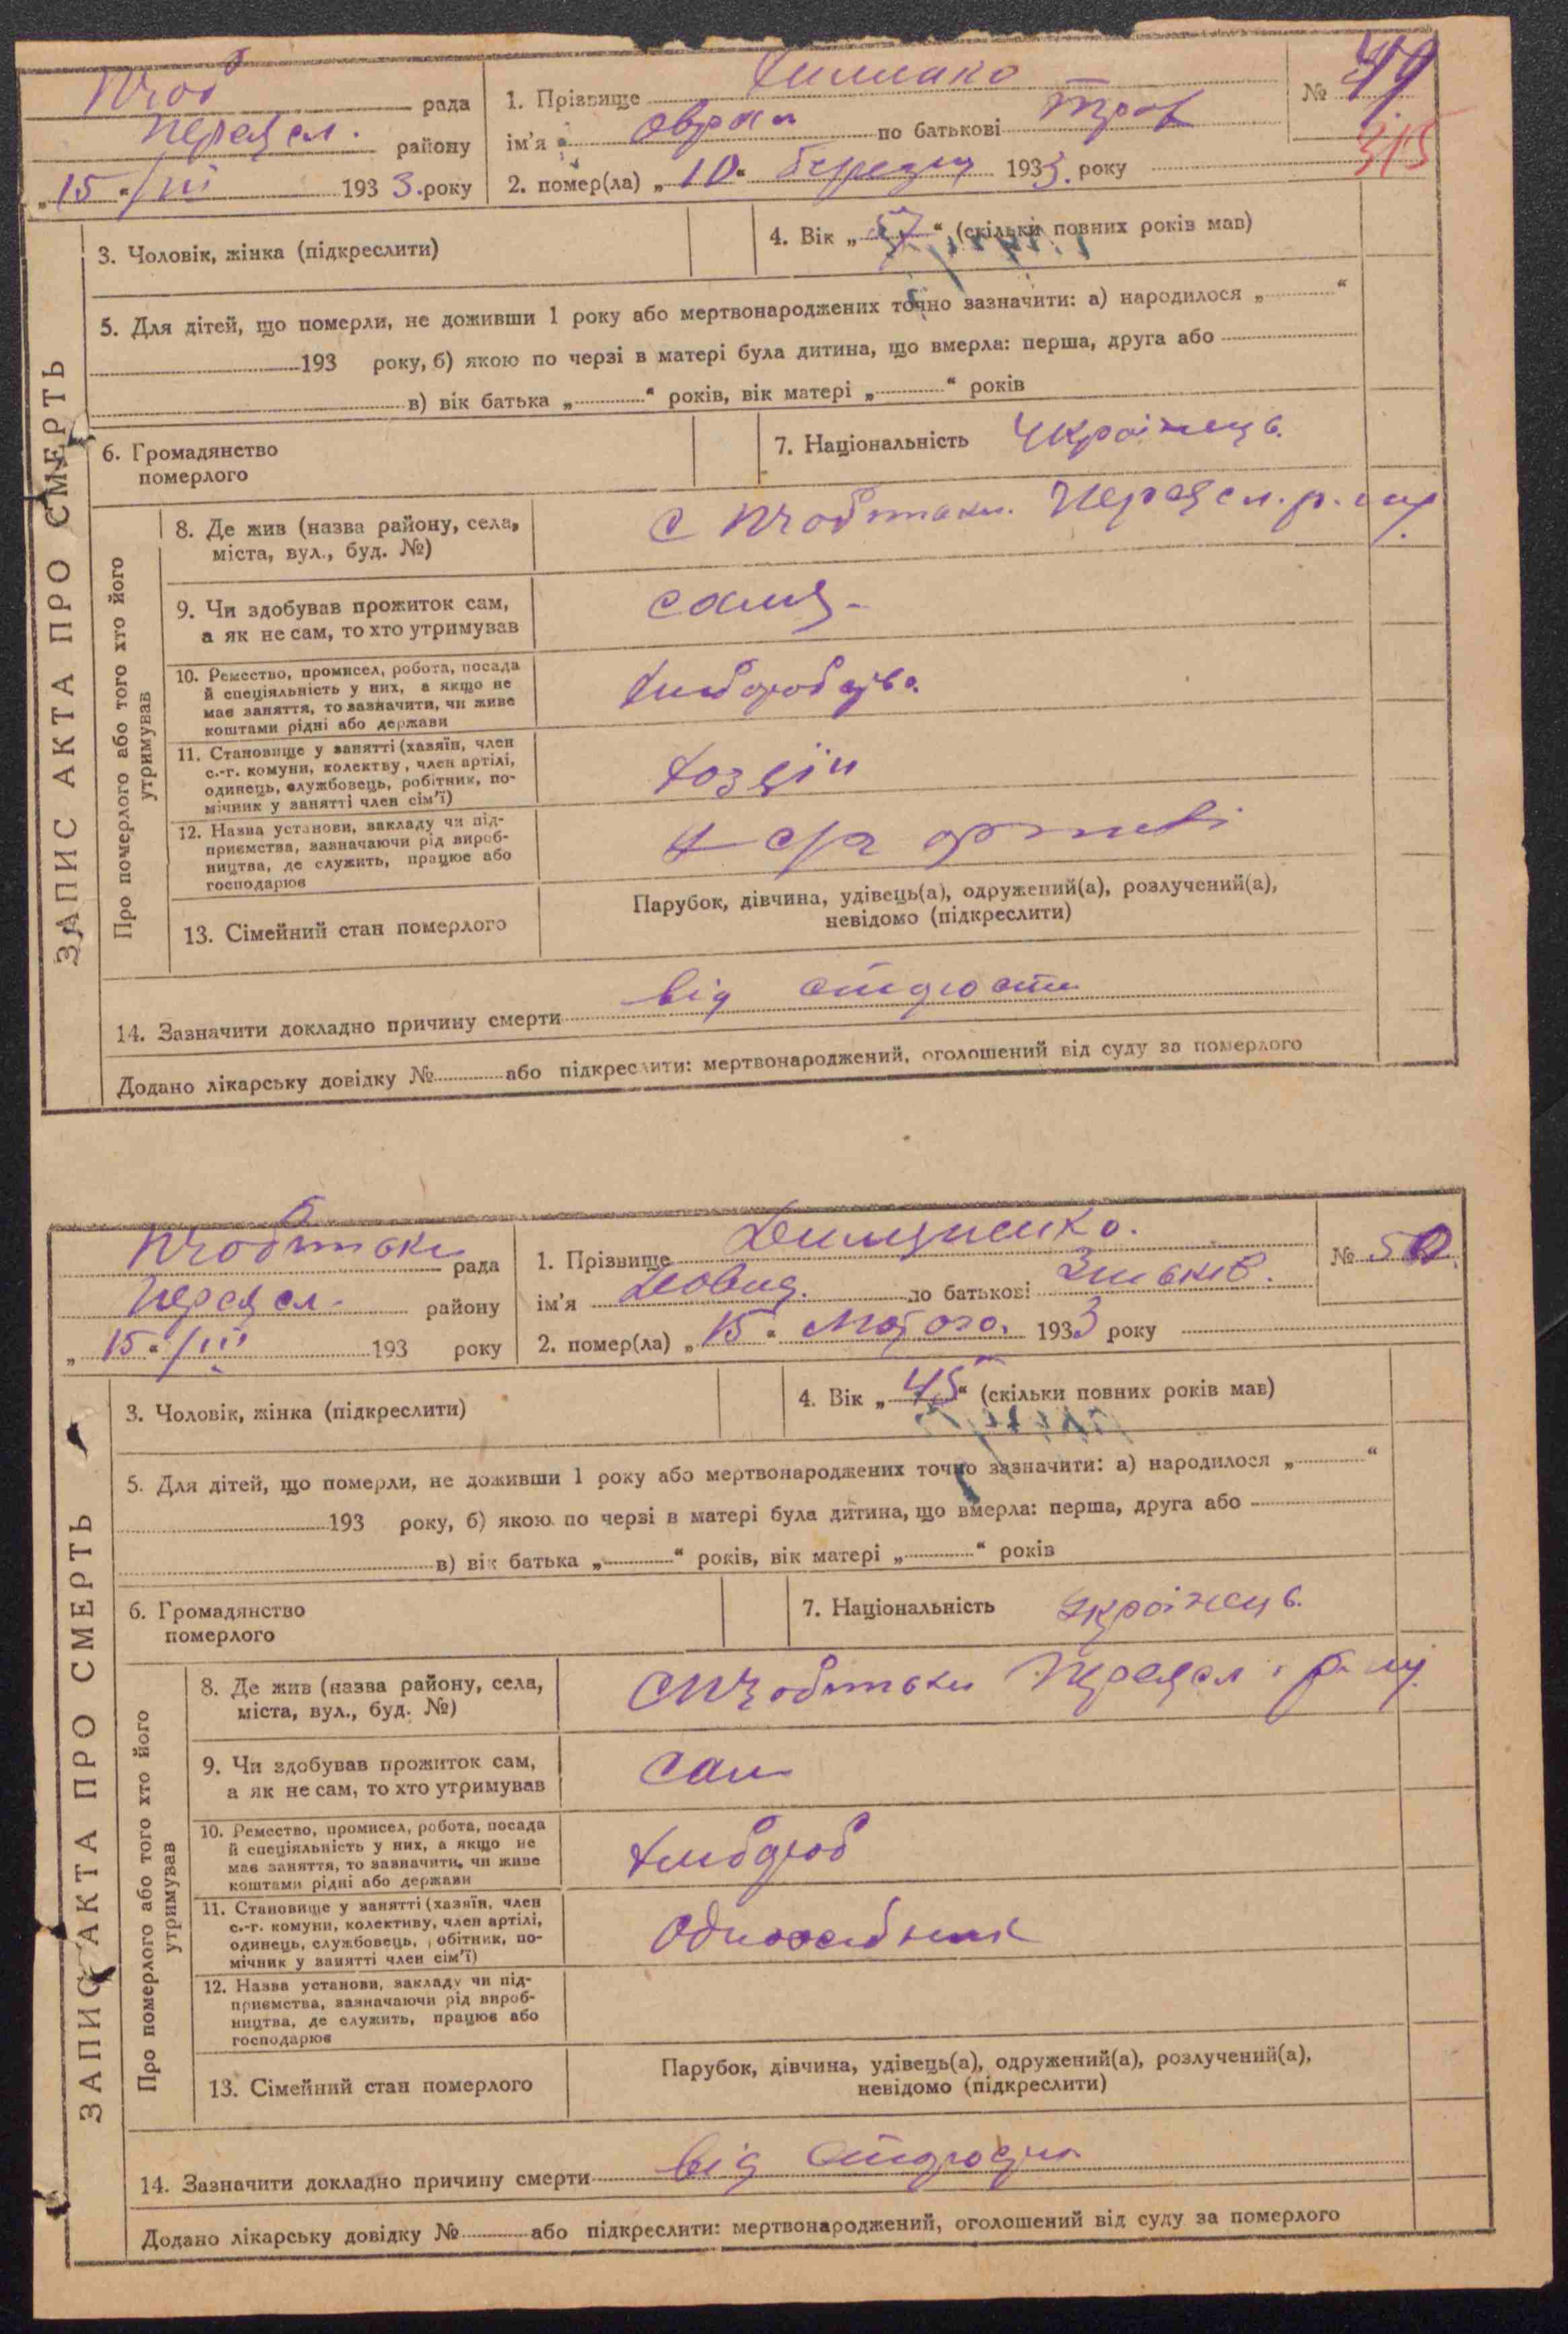 рада
Переясл. району
„15“/III 1933. року
1. Прізвище
ім'я по батькові
2. помер(ла) „10“ березня 1933. року
№ 49
315
ЗАПИС АКТА ПРО СМЕРТЬ
3. Чоловік, жінка (підкреслити)
4. Вік „57“ (скільки повних років мав)
5. Для дітей, що померли, не доживши 1 року або мертвонароджених точно зазначити: а) народилося „ “
193 року, б) якою по черзі в матері була дитина, що вмерла: перша, друга або
в) вік батька „ “ років, вік матері „ “ років
6. Громадянство
померлого
7. Національність Українець.
Про померлого або того хто його
утримував
8. Де жив (назва району, села,
міста, вул., буд. №)
с Переясл. р-ну
9. Чи здобував прожиток сам,
а як не сам, то хто утримував
10. Ремество, промисел, робота, посада
й спеціяльність у них, а якщо не
має заняття, то зазначити, чи живе
коштами рідні або держави
11. Становище у занятті (хазяїн, член
с.-г. комуни, колектву, член артілі,
одинець, службовець, робітник, по-
мічник у занятті член сім'ї)
хозяін
12. Назва установи, закладу чи під-
приємства, зазначаючи рід вироб-
ництва, де служить, працює або
господарює
с/г артилі
13. Сімейний стан померлого
Парубок, дівчина, удівець(а), одружений(а), розлучений(а),
невідомо (підкреслити)
14. Зазначити докладно причину смерти від
Додано лікарську довідку № або підкреслити: мертвонароджений, оголошений від суду за померлого
рада
Переясл. району
„15“/III 193 року
1. Прізвище
ім'я Довид. по батькові
2. помер(ла) „15“ Лютого. 1933 року
№ 50
ЗАПИС АКТА ПРО СМЕРТЬ
3. Чоловік, жінка (підкреслити)
4. Вік „45“ (скільки повних років мав)
5. Для дітей, що померли, не доживши 1 року або мертвонароджених точно зазначити: а) народилося „ “
193 року, б) якою по черзі в матері була дитина, що вмерла: перша, друга або
в) вік батька „ “ років, вік матері „ “ років
6. Громадянство
померлого
7. Національність Українець.
Про померлого або того хто його
утримував
8. Де жив (назва району, села,
міста, вул., буд. №)
Переясл. р-ну.
9. Чи здобував прожиток сам,
а як не сам, то хто утримував
сам
10. Ремество, промисел, робота, посада
й спеціяльність у них, а якщо не
має заняття, то зазначити, чи живе
коштами рідні або держави
хлібороб
11. Становище у занятті (хазяїн, член
с.-г. комуни, колективу, член артілі,
одинець, службовець, робітник, по-
мічник у занятті член сім'ї)
Одноосібник
12. Назва установи, закладу чи під-
приємства, зазначаючи рід вироб-
ництва, де служить, працює або
господарює
13. Сімейний стан померлого
Парубок, дівчина, удівець(а), одружений(а), розлучений(а),
невідомо (підкреслити)
14. Зазначити докладно причину смерти від
Додано лікарську довідку № або підкреслити: мертвонароджений, оголошений від суду за померлого